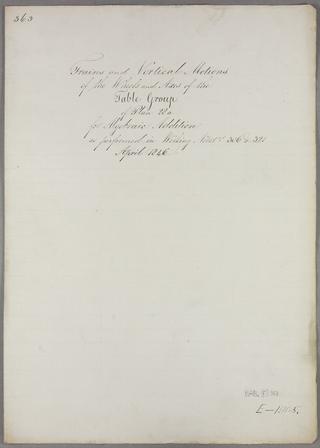 363
Trains and Vertical Motions
of the Wheels and Axes of the
Table Group
of Plan 28a
for Algebraic Addition
as performed in Working Notns
April 1846